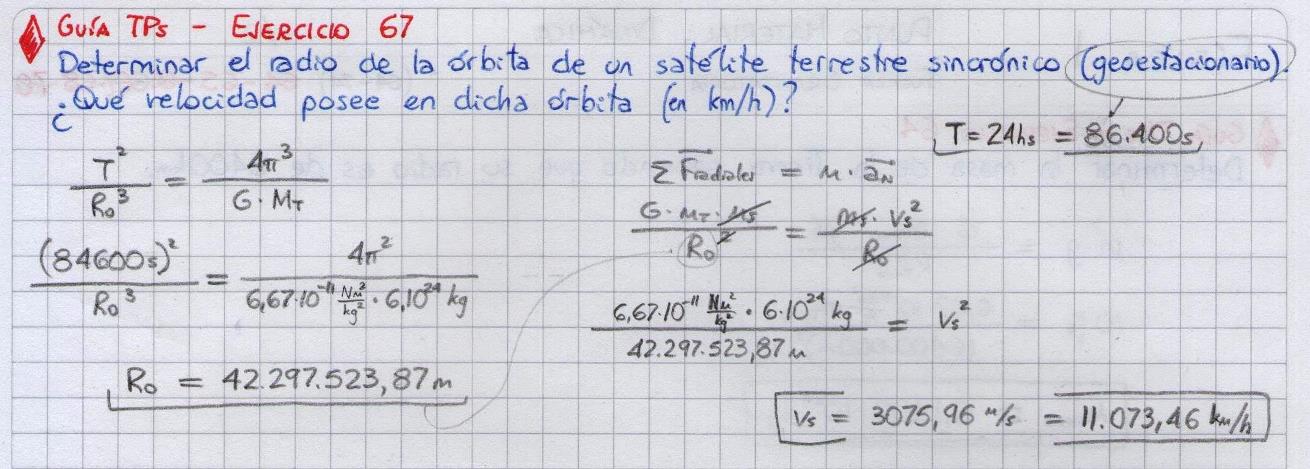 GUÍA TPs - EJERCICIO 67
Determinar el radio de la órbita de un satélite terrestre sincrónico (geoestacionario).
¿Qué velocidad posee en dicha órbita (en km/h)?
T = 24hs = 86.400s
T² / Ro³ = 4π³ / G · MT
(84600s)² / Ro³ = 4π² / 6,67·10⁻¹¹ Nm²/kg² · 6,10²⁴ kg
Ro = 42.297.523,87m
Σ Fradiales = m · aN
G · MT · ms / Ro² = ms · Vs² / Ro
6,67·10⁻¹¹ Nm²/kg² · 6·10²⁴ kg / 42.297.523,87m = Vs²
Vs = 3075,96 m/s = 11.073,46 km/h